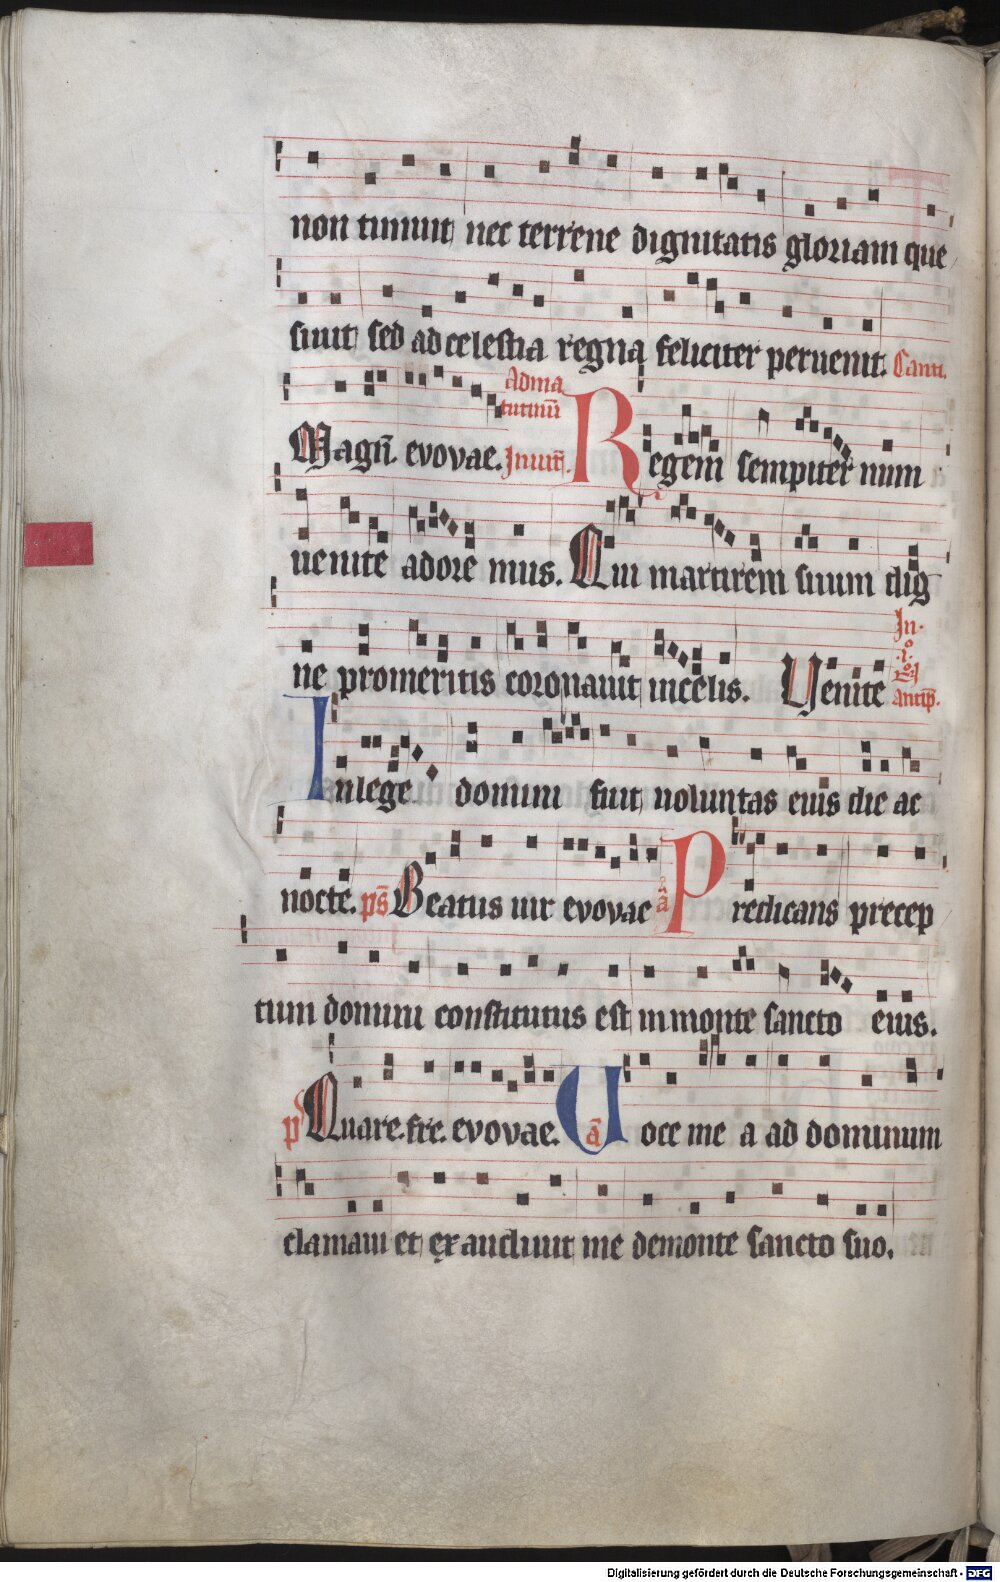 non timuit nec terrene dignitatis gloriam que
siuit sed ad celestia regna feliciter peruenit. Canti.
Magn̄. evovae.
Ad ma
tutinū
Inuit̄. Regem sempiter num
uenite adore mus. Qui martirem suum dig
ne pro meritis coronauit in celis. Uenite
In
antip̄.
In lege domini fuit uoluntas eius die ac
nocte. ps̄ Beatus uir evovae ā Predicans precep
tum domini constitutus est in monte sancto eius.
p Quare. fre. evovae. ā Uoce me a ad dominum
clamaui et exaudiuit me de monte sancto suo.
Digitalisierung gefördert durch die Deutsche Forschungsgemeinschaft - DFG